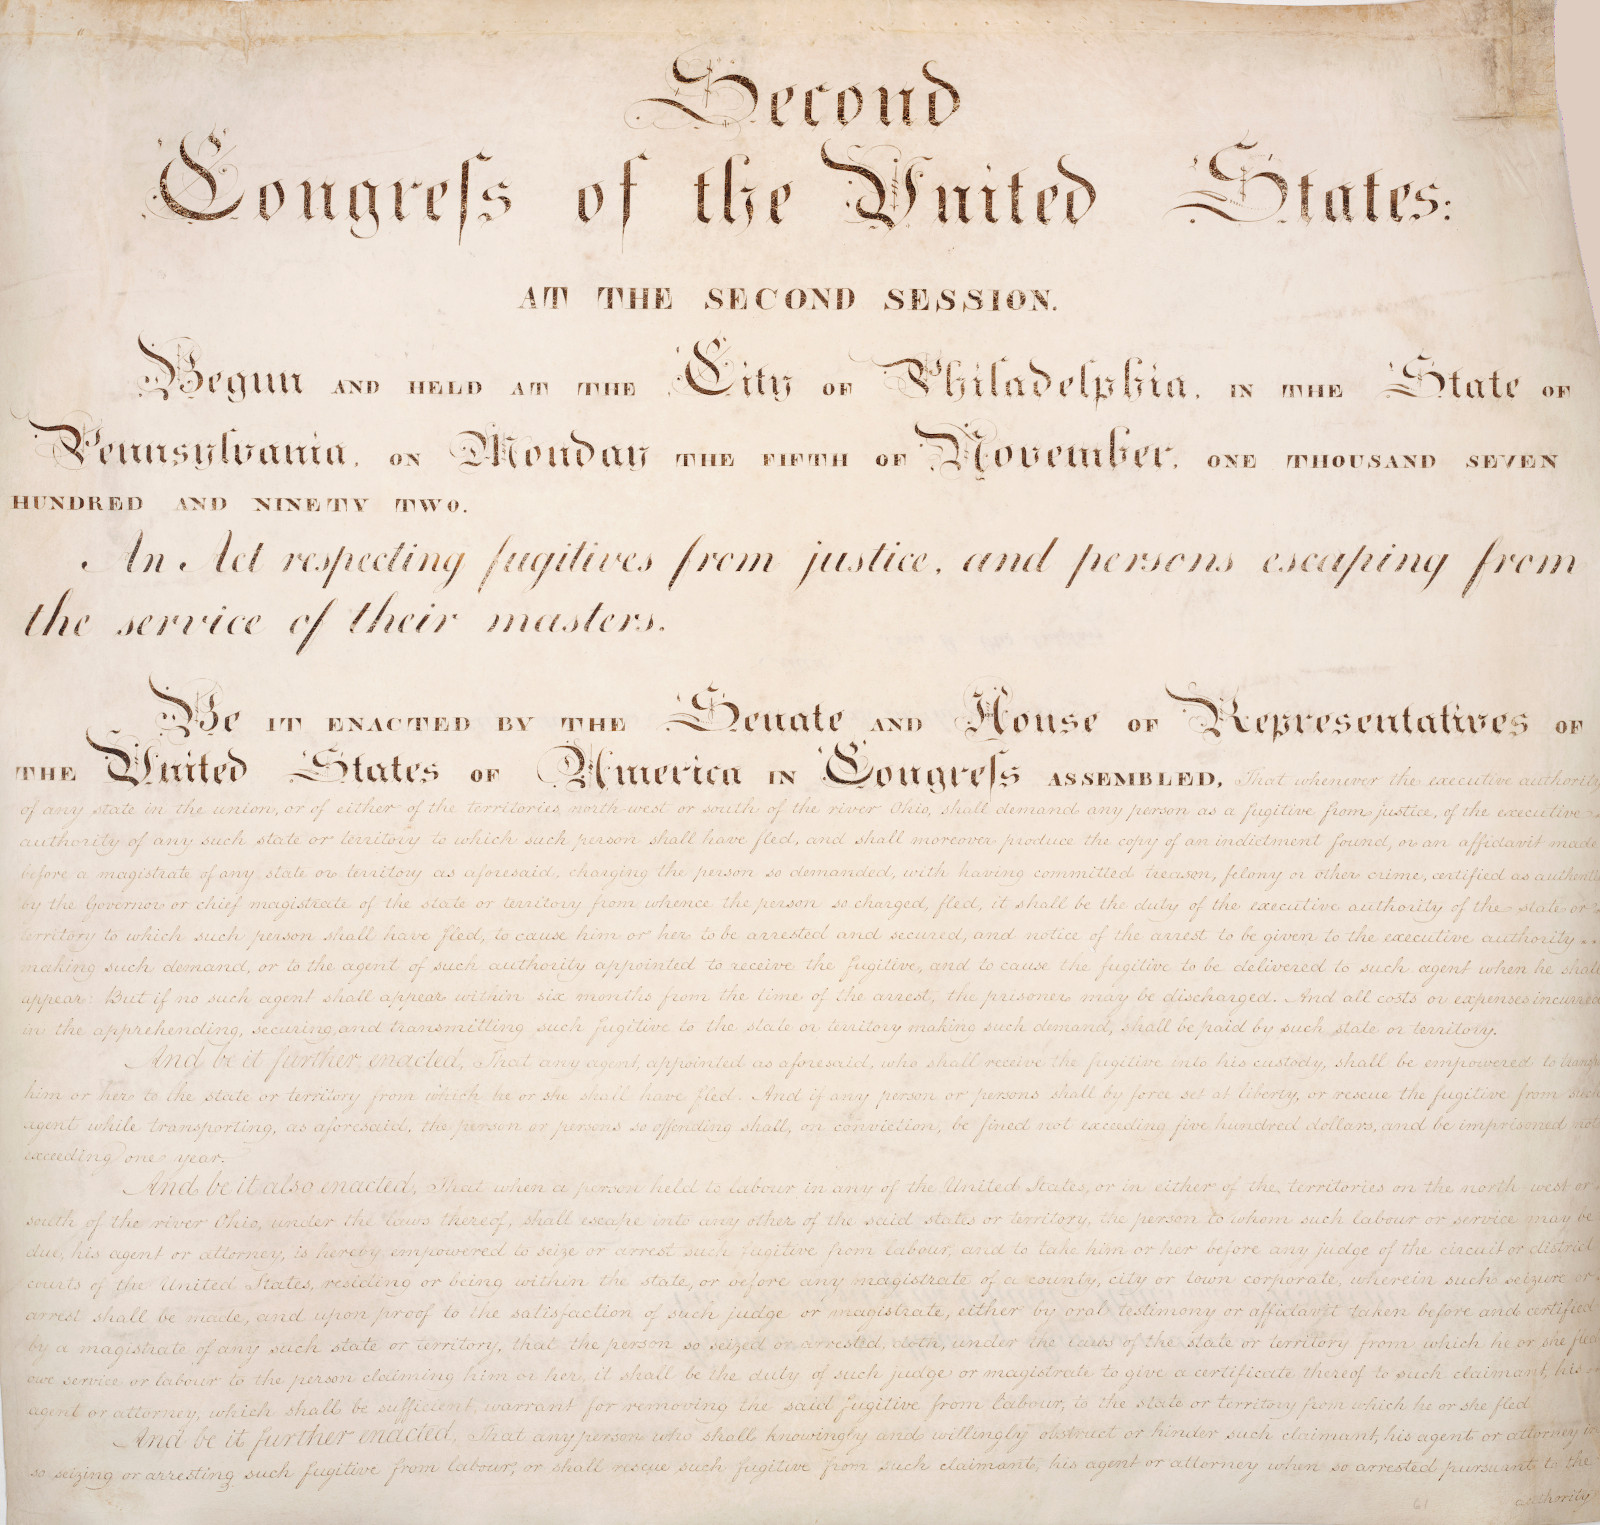 Second
Congress of the United States:
AT THE SECOND SESSION.
Begun AND HELD AT THE City OF Philadelphia, IN THE State OF
Pennsylvania, ON Monday THE FIFTH OF November, ONE THOUSAND SEVEN
HUNDRED AND NINETY TWO.
An Act respecting fugitives from justice, and persons escaping from
the service of their masters.
Be IT ENACTED BY THE Senate AND House OF Representatives OF
THE United States OF America IN Congress ASSEMBLED, That whenever the executive authority
of any state in the union, or of either of the territories north-west or south of the river Ohio, shall demand any person as a fugitive from justice, of the executive
authority of any such state or territory to which such person shall have fled, and shall moreover produce the copy of an indictment found, or an affidavit made
before a magistrate of any state or territory as aforesaid, charging the person so demanded, with having committed treason, felony or other crime, certified as authentic
by the Governor or chief magistrate of the state or territory from whence the person so charged, fled, it shall be the duty of the executive authority of the state or
territory to which such person shall have fled, to cause him or her to be arrested and secured, and notice of the arrest to be given to the executive authority
making such demand, or to the agent of such authority appointed to receive the fugitive, and to cause the fugitive to be delivered to such agent when he shall
appear: But if no such agent shall appear within six months from the time of the arrest, the prisoner may be discharged. And all costs or expenses incurred
in the apprehending, securing, and transmitting such fugitive to the state or territory making such demand, shall be paid by such state or territory.
And be it further enacted, That any agent, appointed as aforesaid, who shall receive the fugitive into his custody, shall be empowered to
him or her to the state or territory from which he or she shall have fled. And if any person or persons shall by force set at liberty, or rescue the fugitive from such
agent while transporting, as aforesaid, the person or persons so offending shall, on conviction, be fined not exceeding five hundred dollars, and be imprisoned not
exceeding one year.
And be it also enacted, That when a person held to labour in any of the United States, or in either of the territories on the north-west or
south of the river Ohio, under the laws thereof, shall escape into any other of the said states or territory, the person to whom such labour or service may be
due, his agent or attorney, is hereby empowered to seize or arrest such fugitive from labour, and to take him or her before any judge of the circuit or district
courts of the United States, residing or being within the state, or before any magistrate of a county, city or town corporate, wherein such seizure or
arrest shall be made, and upon proof to the satisfaction of such judge or magistrate, either by oral testimony or affidavit taken before and certified
by a magistrate of any such state or territory, that the person so seized or arrested, doth, under the laws of the state or territory from which he or she fled
owe service or labour to the person claiming him or her, it shall be the duty of such judge or magistrate to give a certificate thereof to such claimant, his
agent or attorney, which shall be sufficient warrant for removing the said fugitive from labour, to the state or territory from which he or she fled
And be it further enacted, That any person who shall knowingly and willingly obstruct or hinder such claimant, his agent or attorney in
so seizing or arresting such fugitive from labour, or shall rescue such fugitive from such claimant, his agent or attorney when so arrested pursuant to the
authority
61